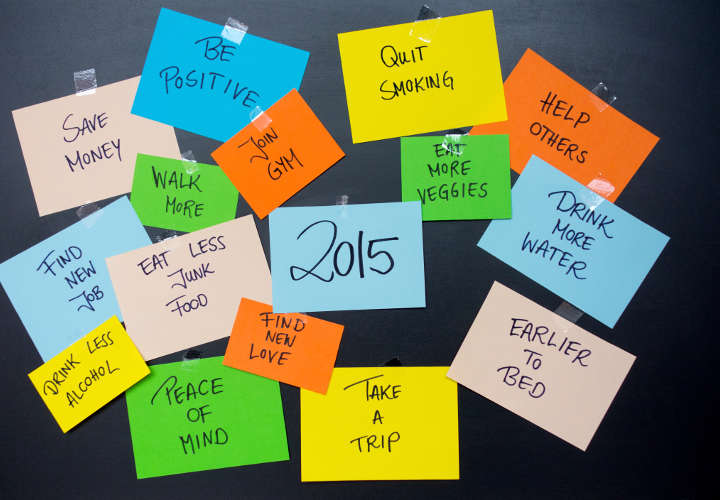 BE
POSITIVE
QUIT
SMOKING
SAVE
MONEY
JOIN
GYM
HELP
OTHERS
WALK
MORE
EAT
MORE
VEGGIES
DRINK
MORE
WATER
FIND
NEW
JOB
EAT LESS
JUNK
FOOD
2015
DRINK LESS
ALCOHOL
FIND
NEW
LOVE
EARLIER
TO
BED
PEACE
OF
MIND
TAKE
A
TRIP